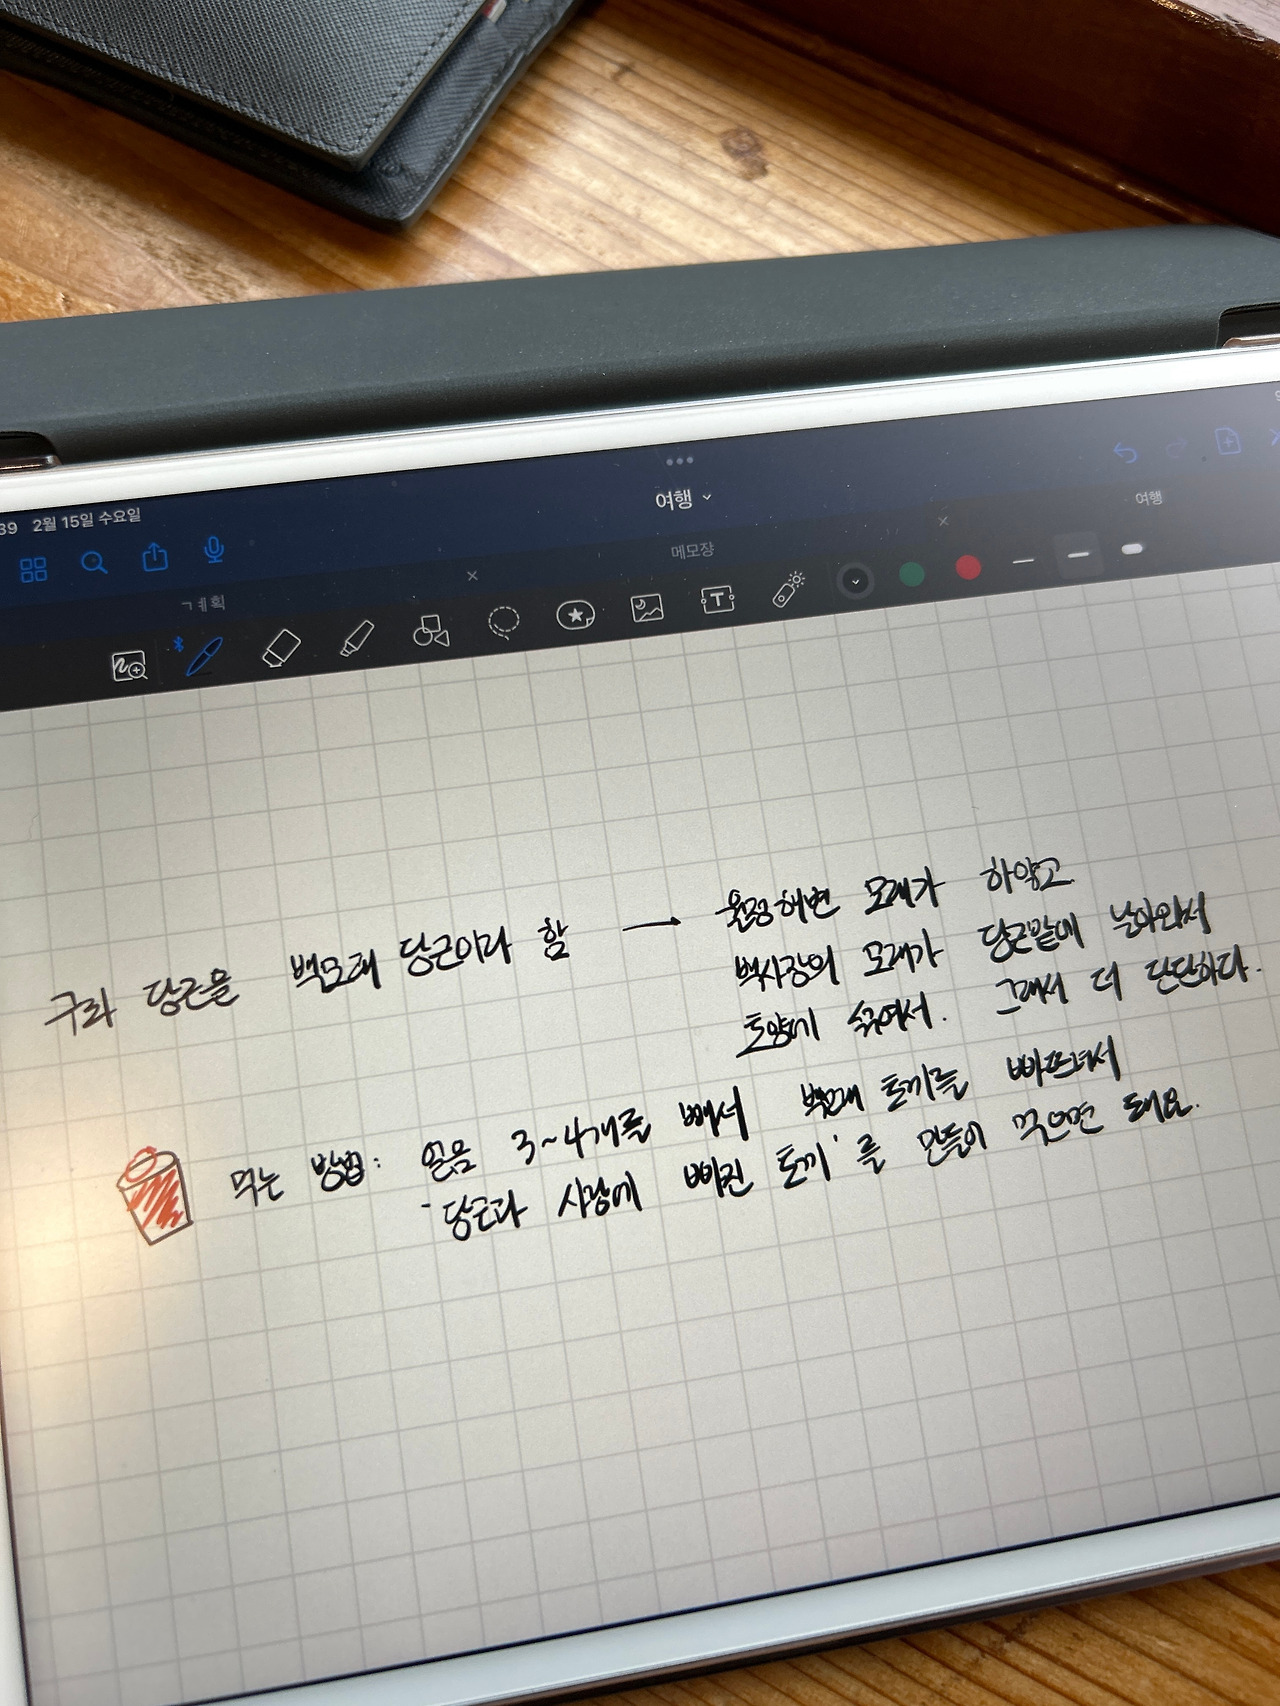 39 2월 15일 수요일
여행
여행
메모장
계획
구좌 당근을 백모래 당근이라 함 → 월정해변 모래가 하얗고
백사장의 모래가 당근밭에 날아와서
토양에 섞여서. 그래서 더 단단하다.
먹는 방법: 얼음 3~4개를 빼서 백모래 토끼를 빠뜨려서
'당근과 사랑에 빠진 토끼'를 만들어 먹으면 돼요.